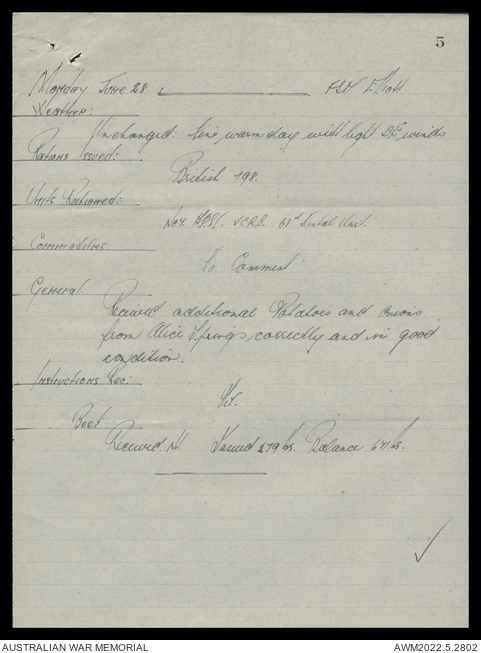 5
Monday June 28
Weather:
Unchanged: fine warm day with light SE winds
Rations Issued:
British 198.
Units Rationed:
Dental Unit.
Commodities:
No Comment
General
Received additional Potatoes and onions
from Alice Springs, correctly and in good
condition.
Instructions Rec:
Nil.
Received Nil Issued 279 lbs. Balance 64 lbs.
AUSTRALIAN WAR MEMORIAL
AWM2022.5.2802